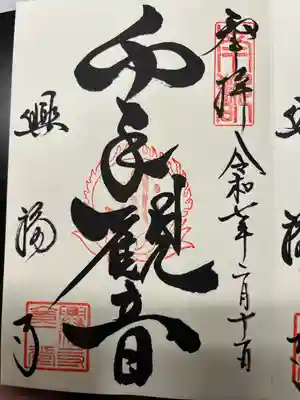 奉拝
令和七年二月十一日
千手観音
興福寺